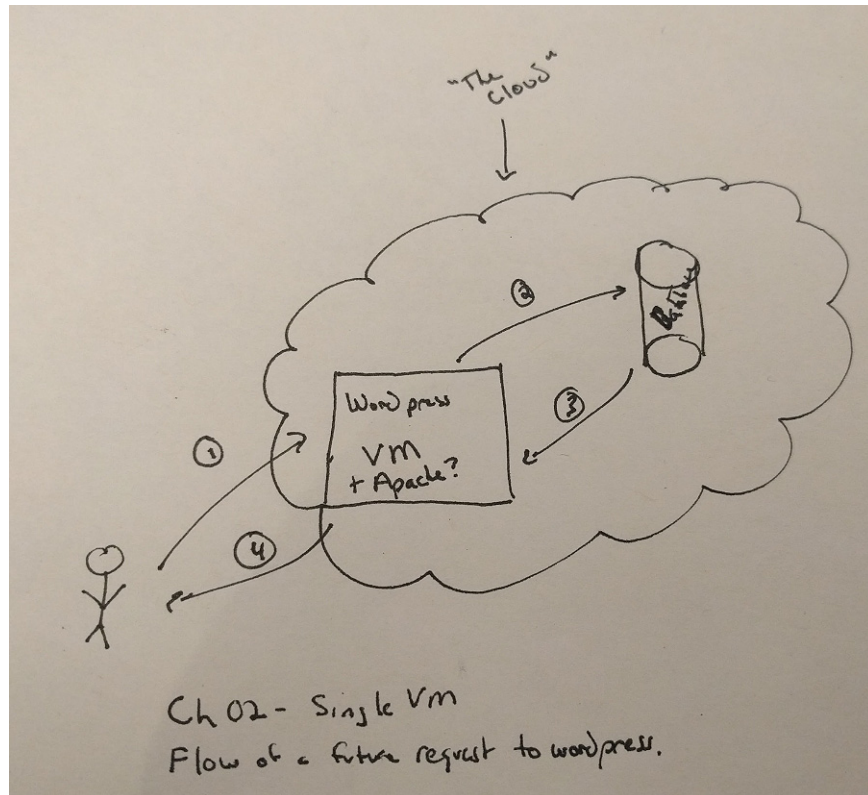 "The
Cloud"
②
Database
Wordpress
③
VM
①
+ Apache?
④
Ch 02 - Single VM
Flow of a future request to wordpress.